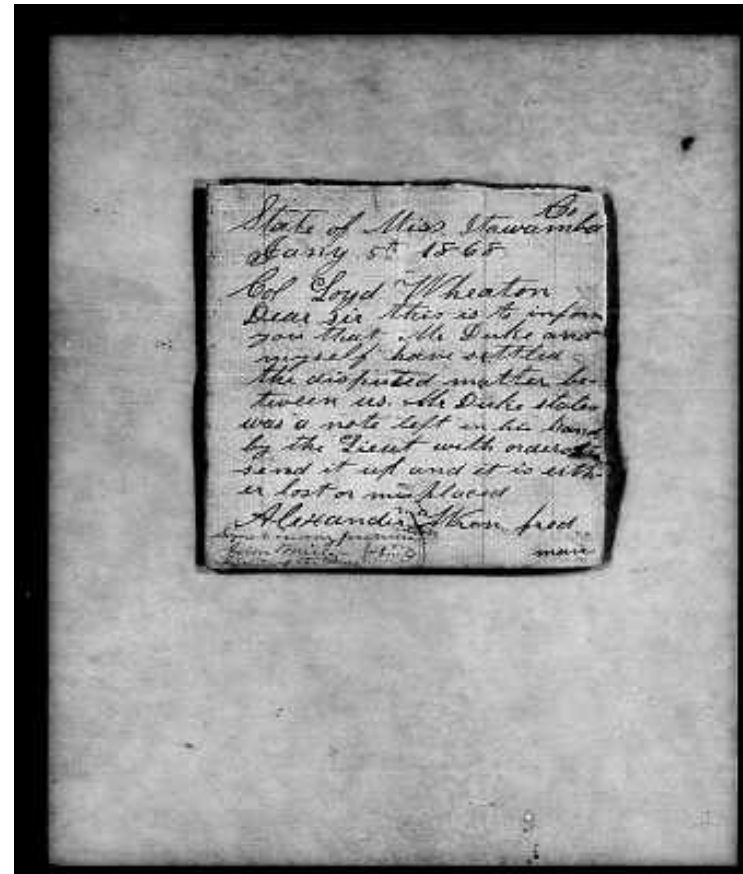 State of Miss. Itawamba Co.
Jany 5th 1868
Col Loyd Wheaton
Dear Sir this is to inform
you that Mr Duke and
myself have settled
the disputed matter be-
tween us. Mr Duke states
was a note left in his hand
by the Lieut with orders to
send it up and it is eith-
er lost or mis placed
Alexander freed
man